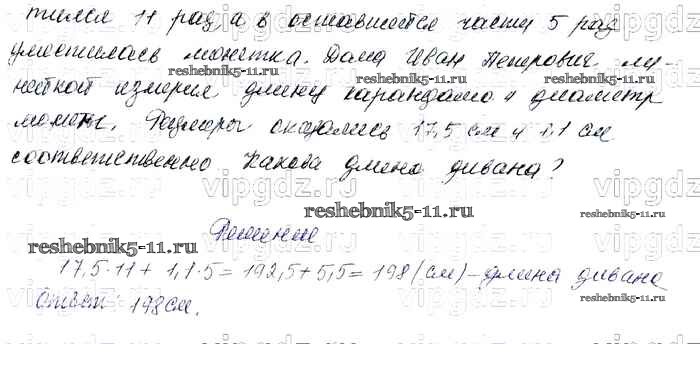 тился 11 раз, а в оставшейся части 5 раз
уместилась монетка. Дома Иван Петрович ли-
нейкой измерил длину карандаша и диаметр
монеты. Размеры оказались 17,5 см и 1,1 см
соответственно Какова длина дивана?
Решение
17,5·11 + 1,1·5 = 192,5 + 5,5 = 198 (см) – длина дивана
Ответ: 198 см.
reshebnik5-11.ru
reshebnik5-11.ru
reshebnik5-11.ru
reshebnik5-11.ru
reshebnik5-11.ru
reshebnik5-11.ru
vipgdz.ru
vipgdz.ru
vipgdz.ru